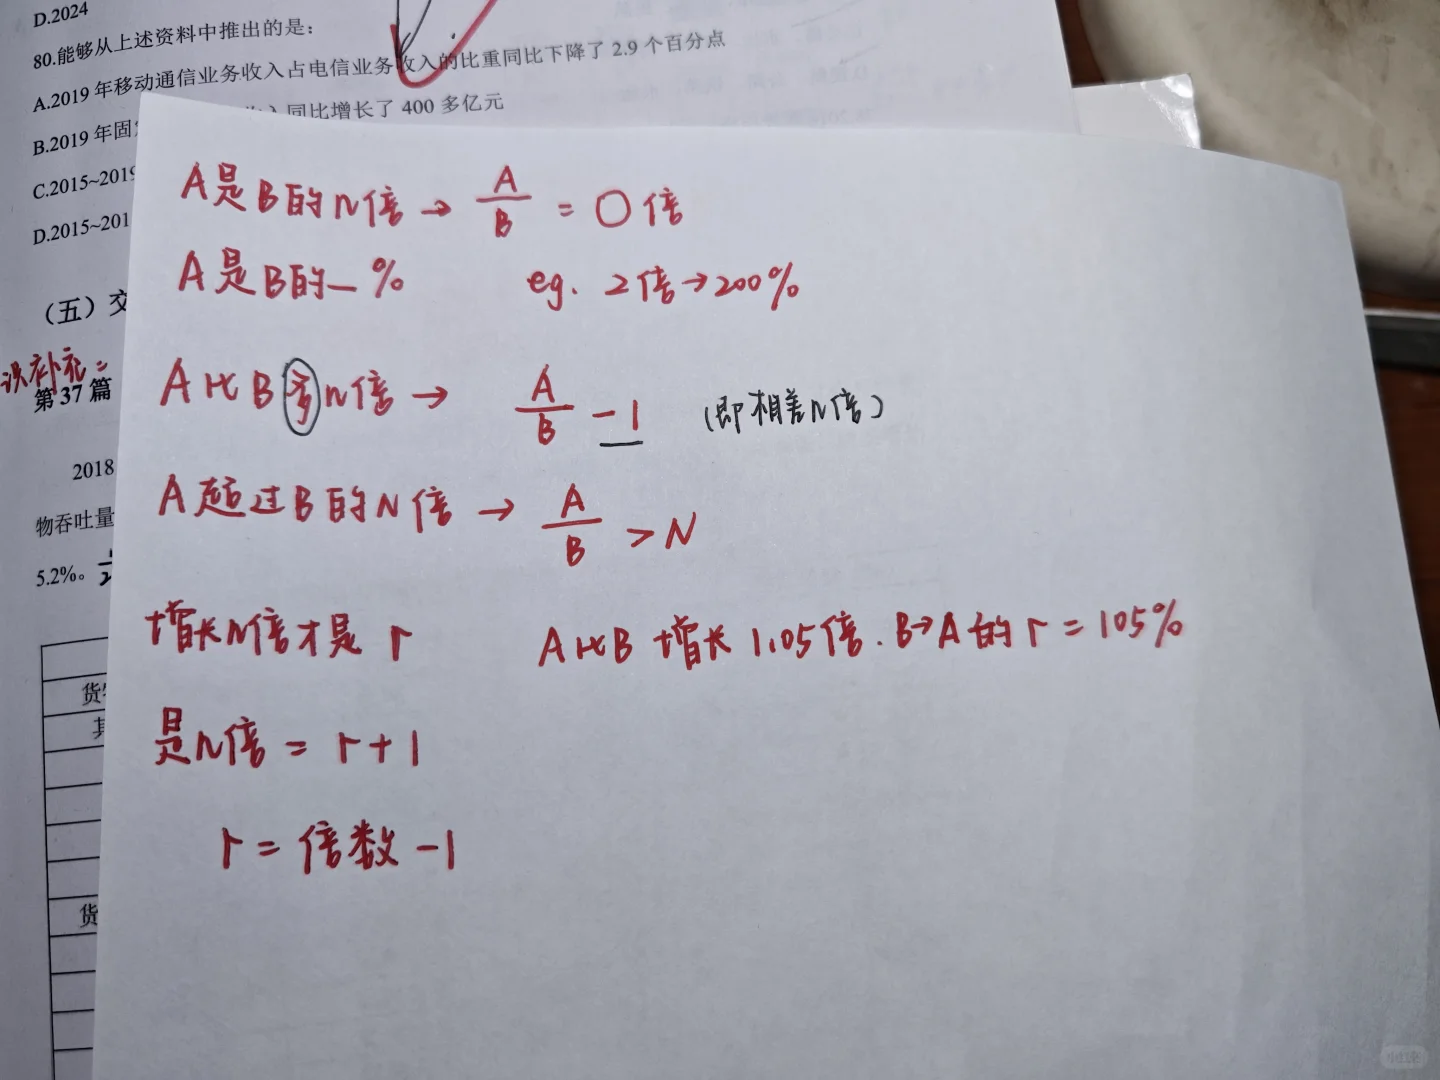 D.2024
80.能够从上述资料中推出的是：
A.2019 年移动通信业务收入占电信业务收入的比重同比下降了 2.9 个百分点
B.2019 年固 入同比增长了 400 多亿元
C.2015~2019
D.2015~201
（五）交
识补充：
第 37 篇
2018
物吞吐量
5.2%。
货
货
A是B的N倍→ A/B = ○倍
A是B的_% eg. 2倍→200%
A比B多n倍→ A/B -1 (即相差N倍)
A超过B的N倍→ A/B >N
增长N倍才是 r A比B 增长 1.05倍. B→A的r=105%
是N倍= r+1
r=倍数-1